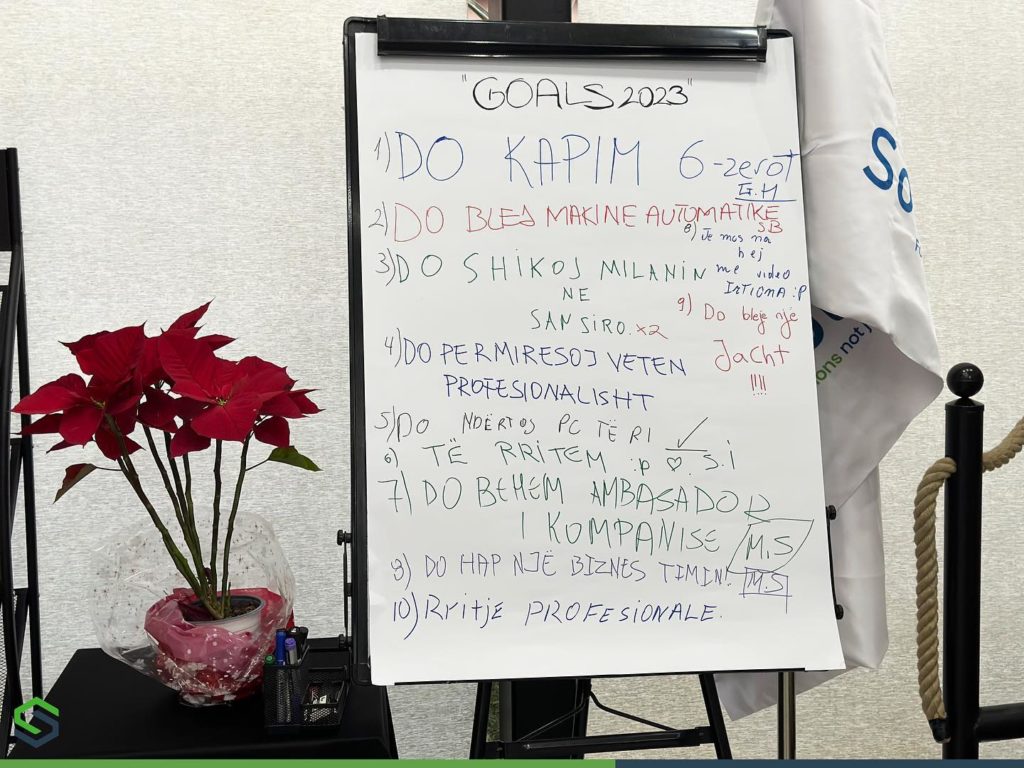 "GOALS 2023"
1) DO KAPIM 6-zerot
G.H
2) DO BLEJ MAKINE AUTOMATIKE
SB
3) DO SHIKOJ MILANIN
NE
SAN SIRO. x2
8) Je mos na
hej
me video
IRTIONA :P
9) Do bleje një
Jacht
!!!!
4) DO PERMIRESOJ VETEN
PROFESIONALISHT
5) DO NDËRTOJ PC TË RI ✓
6) TË RRITEM :p ♡. S.I
7) DO BEHEM AMBASADOR
I KOMPANISE M.S
8) DO HAP NJË BIZNES TIMIN! M.S
10) Rritje PROFESIONALE.
So
ons not j